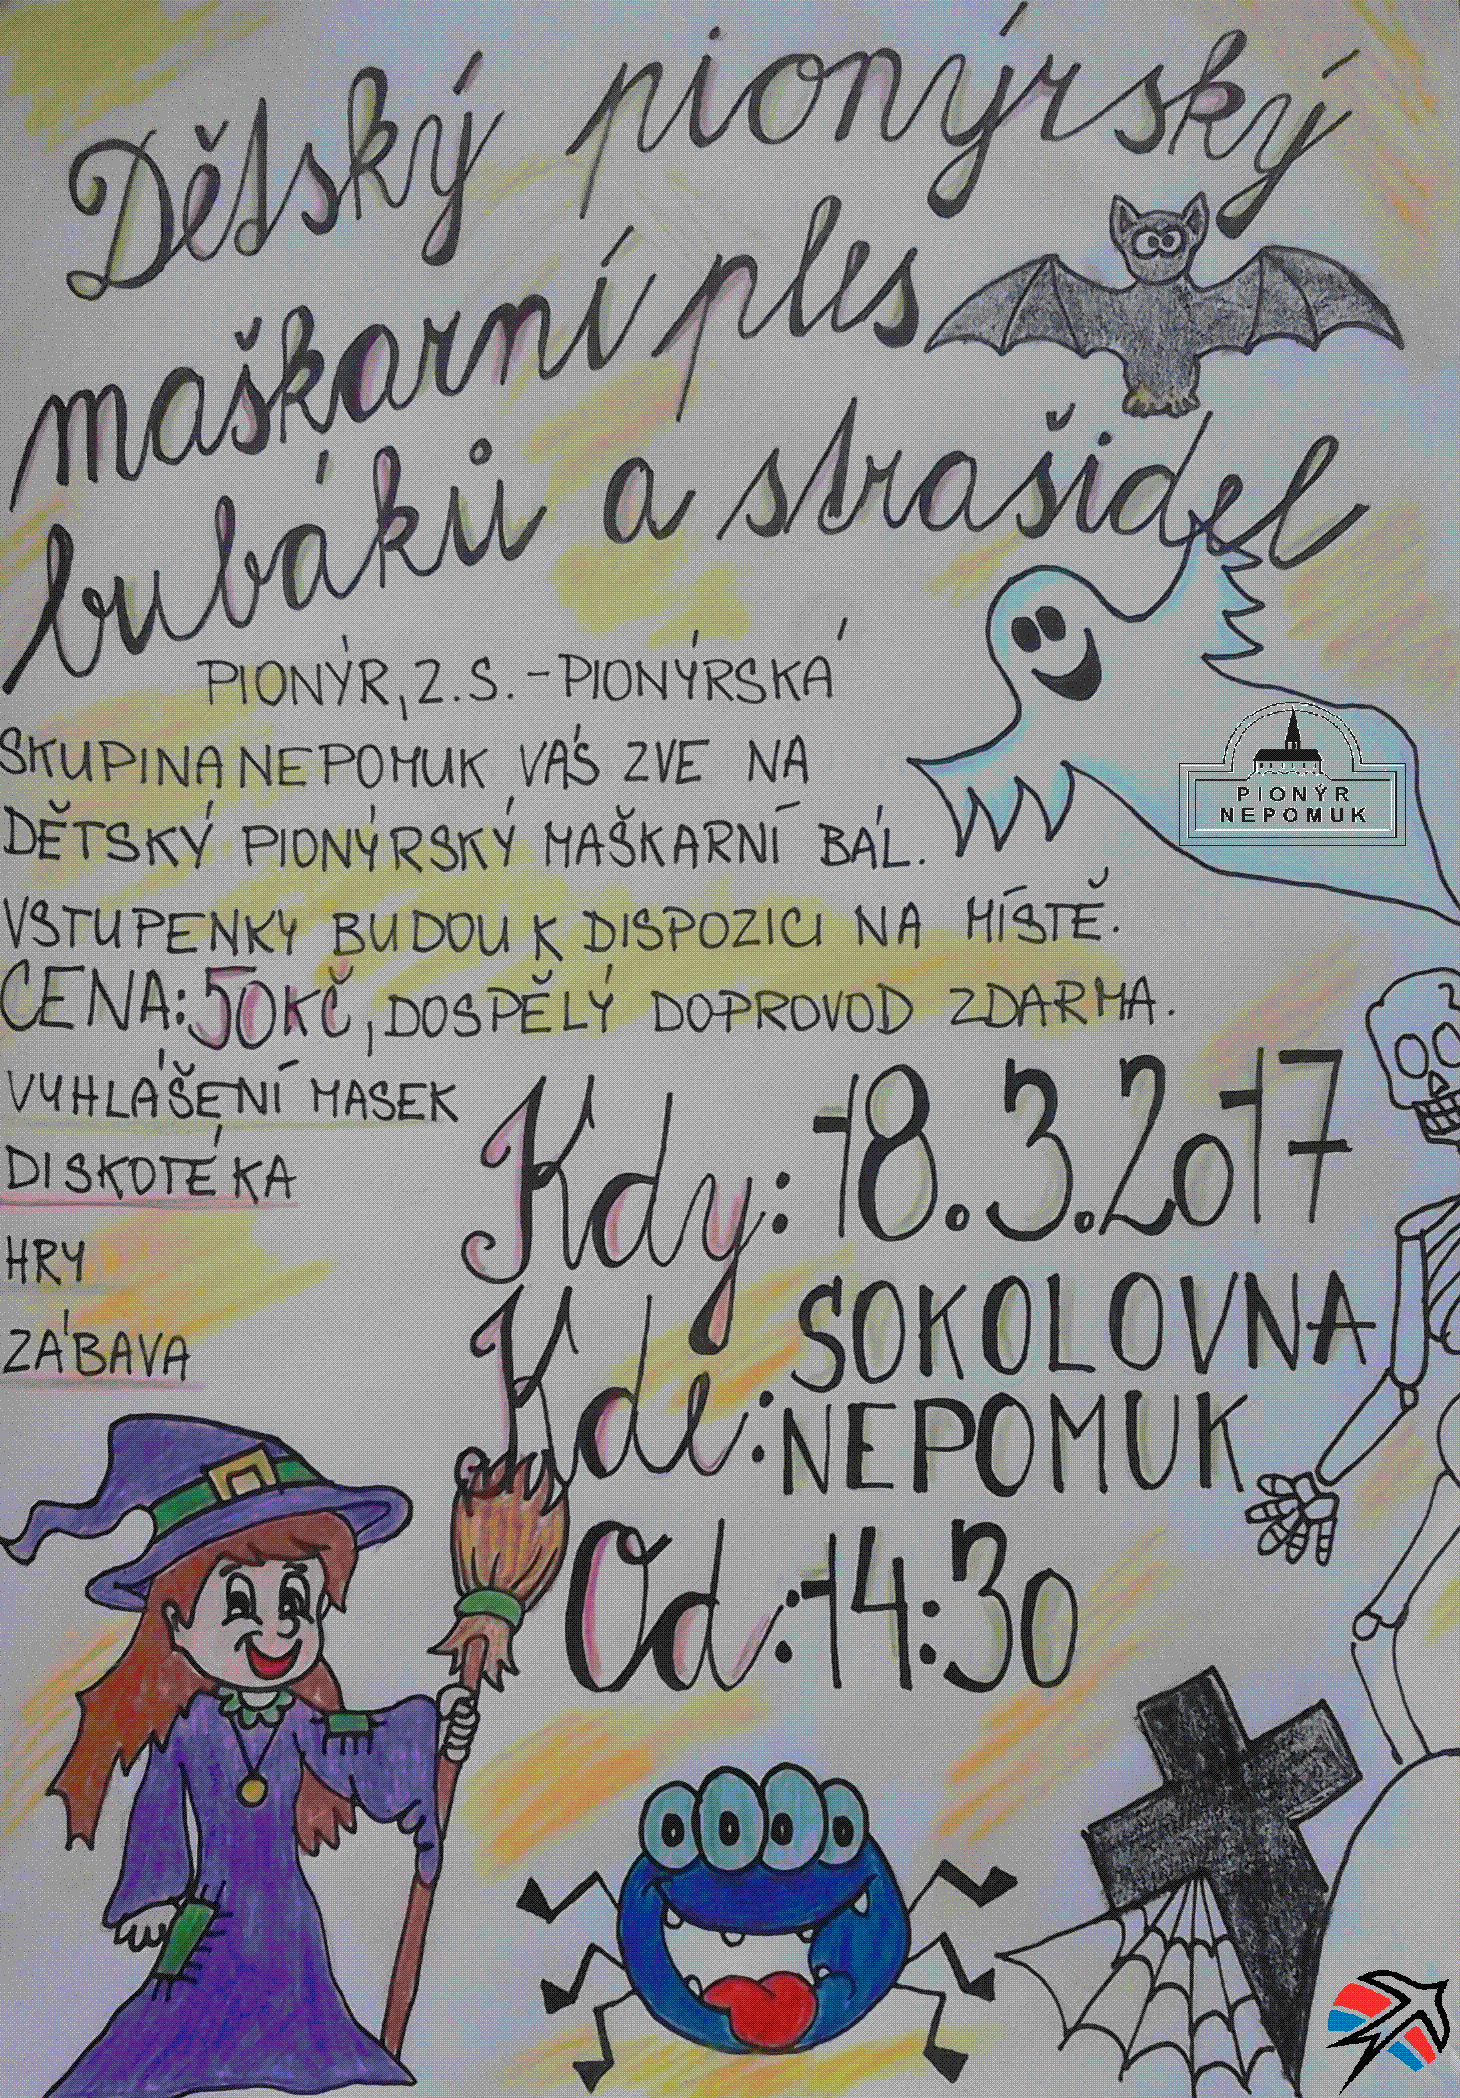 Dětský pionýrský
maškarní ples
bubáků a strašidel
PIONÝR, Z.S. - PIONÝRSKÁ
SKUPINA NEPOMUK VÁS ZVE NA
DĚTSKÝ PIONÝRSKÝ MAŠKARNÍ BÁL.
VSTUPENKY BUDOU K DISPOZICI NA MÍSTĚ.
CENA: 50KČ, DOSPĚLÝ DOPROVOD ZDARMA.
VYHLÁŠENÍ MASEK
DISKOTÉKA
HRY
ZÁBAVA
Kdy: 18.3.2017
Kde: SOKOLOVNA
NEPOMUK
Od: 14:30
PIONÝR
NEPOMUK